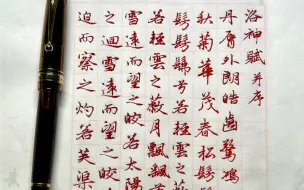 洛神賦并序
丹唇外朗皓齒驚鴻
秋菊華茂春松髣
髣髴兮若輕雲之
若輕雲之蔽月飄飄
雪遠而望之皎若太陽
之迴雪遠而望之皎
迫而察之灼若芙渠